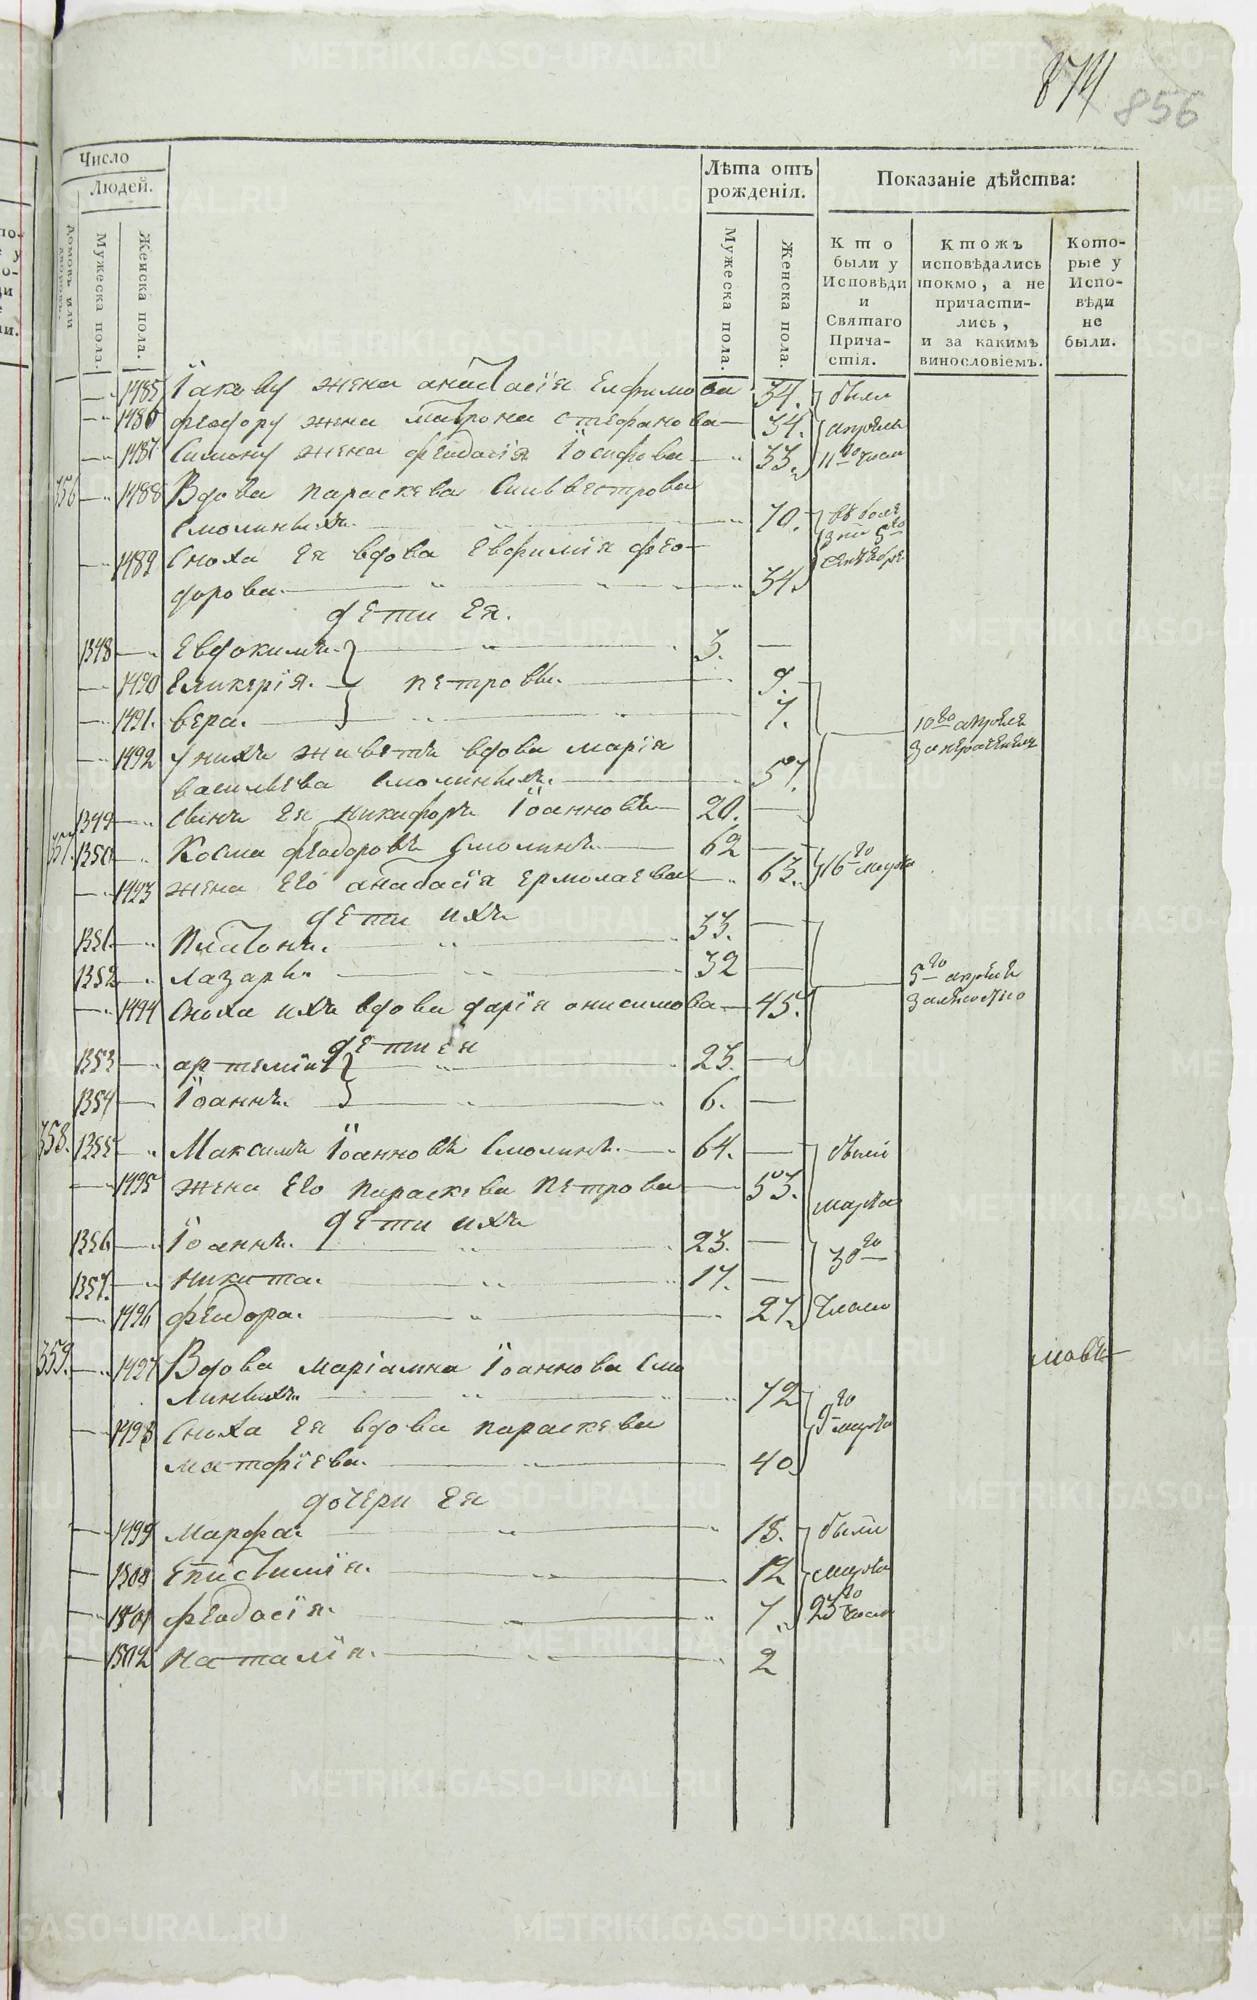 874
856
Число
Людей.
Лѣта отъ
рожденія.
Показаніе дѣйства:
Домовъ или
Мужеска пола.
Женска пола.
Мужеска пола.
Женска пола.
Кто
были у
Исповѣди
и
Святаго
Прича-
стія.
Ктожъ
исповѣдались
токмо, а не
причасти-
лись,
и за какимъ
винословіемъ.
Кото-
рые у
Испо-
вѣди
не
были.
1485 Іакову жена анастасія Елфимова 34. были
1486 феодору жена матрона стефанова 34. апрѣля
1487 Симону жена феодосія Іосифова 33. 11го числа
356 1488 Вдова параскева Сильвестрова
Смолиныхъ. 70.
1489 Сноха Ея вдова Евфимія фео-
дорова. 34.
дѣти Ея.
1348 Евдокимъ. 3.
1490 Гликерія. петровы. 9.
1491. вера. 7. 10го апрѣля
1492 у нихъ живетъ вдова марія
васильева Смолиныхъ. 57.
1349 Сынъ Ея никифоръ Іоанновъ 20.
357. 1350 Косма феодоровъ Смолинъ 62
1493 жена Его анастасія Ермолаева 63. 16го марта
дѣти ихъ
1351 Платонъ. 33.
1352 Лазарь. 32 5го апрѣля
1494 Сноха ихъ вдова дарія онисимова 45.
дѣти Ея
1353 артемій 23.
1354 Іоаннъ. 6.
358. 1355 Максимъ Іоанновъ Смолинъ. 64. были
1495 жена Его параскева петрова 53. марта
дѣти ихъ
1356 Іоаннъ. 23. 30го
1357. никита. 17.
1496 феодора. 27. числа
359. 1497 Вдова маріамна Іоаннова Смо
линыхъ. 72 9го
1498 Сноха Ея вдова параскева марта
матфіева. 40
дочери Ея
1499 Марфа. 18. были
1500 Епистимія. 12 марта
1501 феодосія. 7. 23го числа
1502 наталія. 2